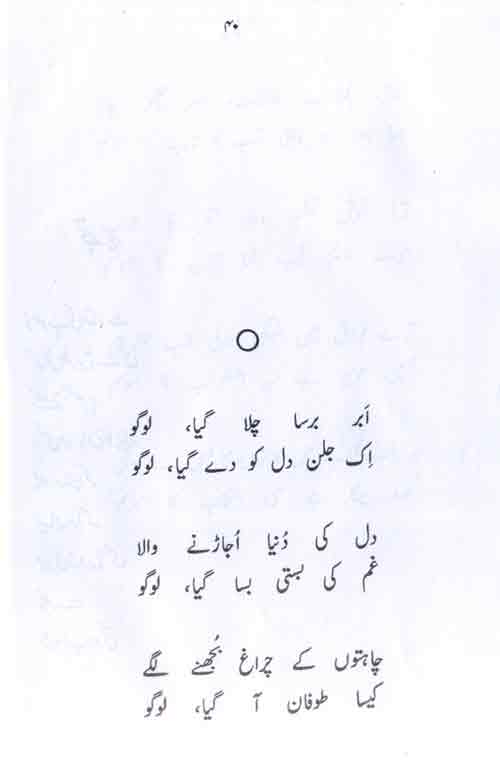 ۴۰
اَبر برسا چلا گیا، لوگو
اِک جلن دل کو دے گیا، لوگو
دل کی دُنیا اُجاڑنے والا
غم کی بستی بسا گیا، لوگو
چاہتوں کے چراغ بُجھنے لگے
کیسا طوفان آ گیا، لوگو